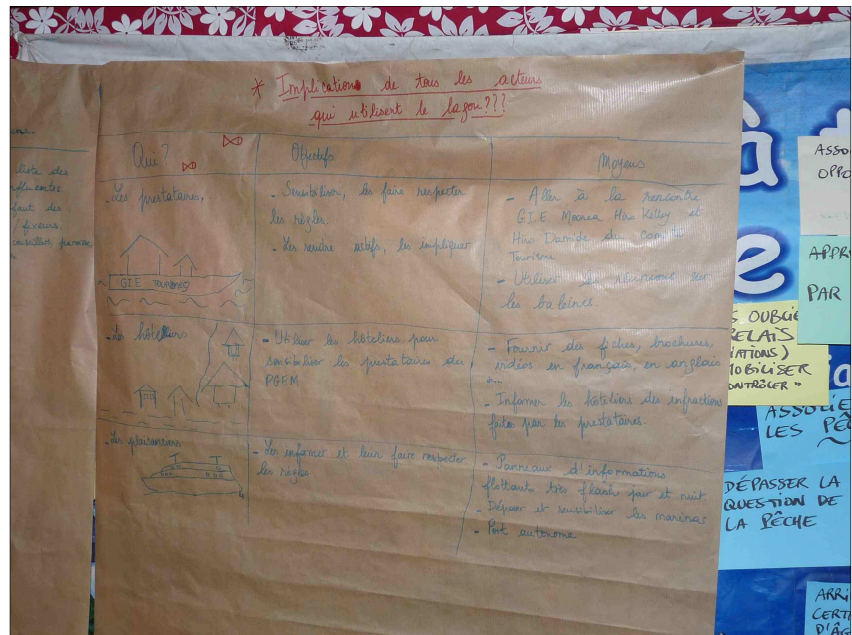 * Implications de tous les acteurs
qui utilisent le lagon???
Qui?
Objectifs
Moyens
- Les prestataires,
GIE TOURISME
- Sensibiliser, les faire respecter
les règles.
- Les rendre actifs, les impliquer
- Aller à la rencontre
G.I.E Moorea Hiro Kelley et
Hiro Damide du comité
Tourisme
- Utiliser les réunions sur
les baleines
- Les hôteliers
- Utiliser les hôteliers pour
sensibiliser les prestataires du
PGEM
- Fournir des fiches, brochures,
vidéos en français, en anglais
...
- Informer les hôteliers des infractions
faites par les prestataires.
- Les plaisanciers
- Les informer et leur faire respecter
les règles
- Panneaux d'informations
flottant très flash jour et nuit
- Déposer et sensibiliser les marinas
- Port autonome
liste des
faut des
à
e
ASSO
OPPO
APPR
PAR
OUBLIE
RELAIS
MOBILISER
CONTRÔLER"
ASSOCIE
LES PÊ
DÉPASSER LA
QUESTION DE
LA PÊCHE
ARRI
CERT
D'ÂG